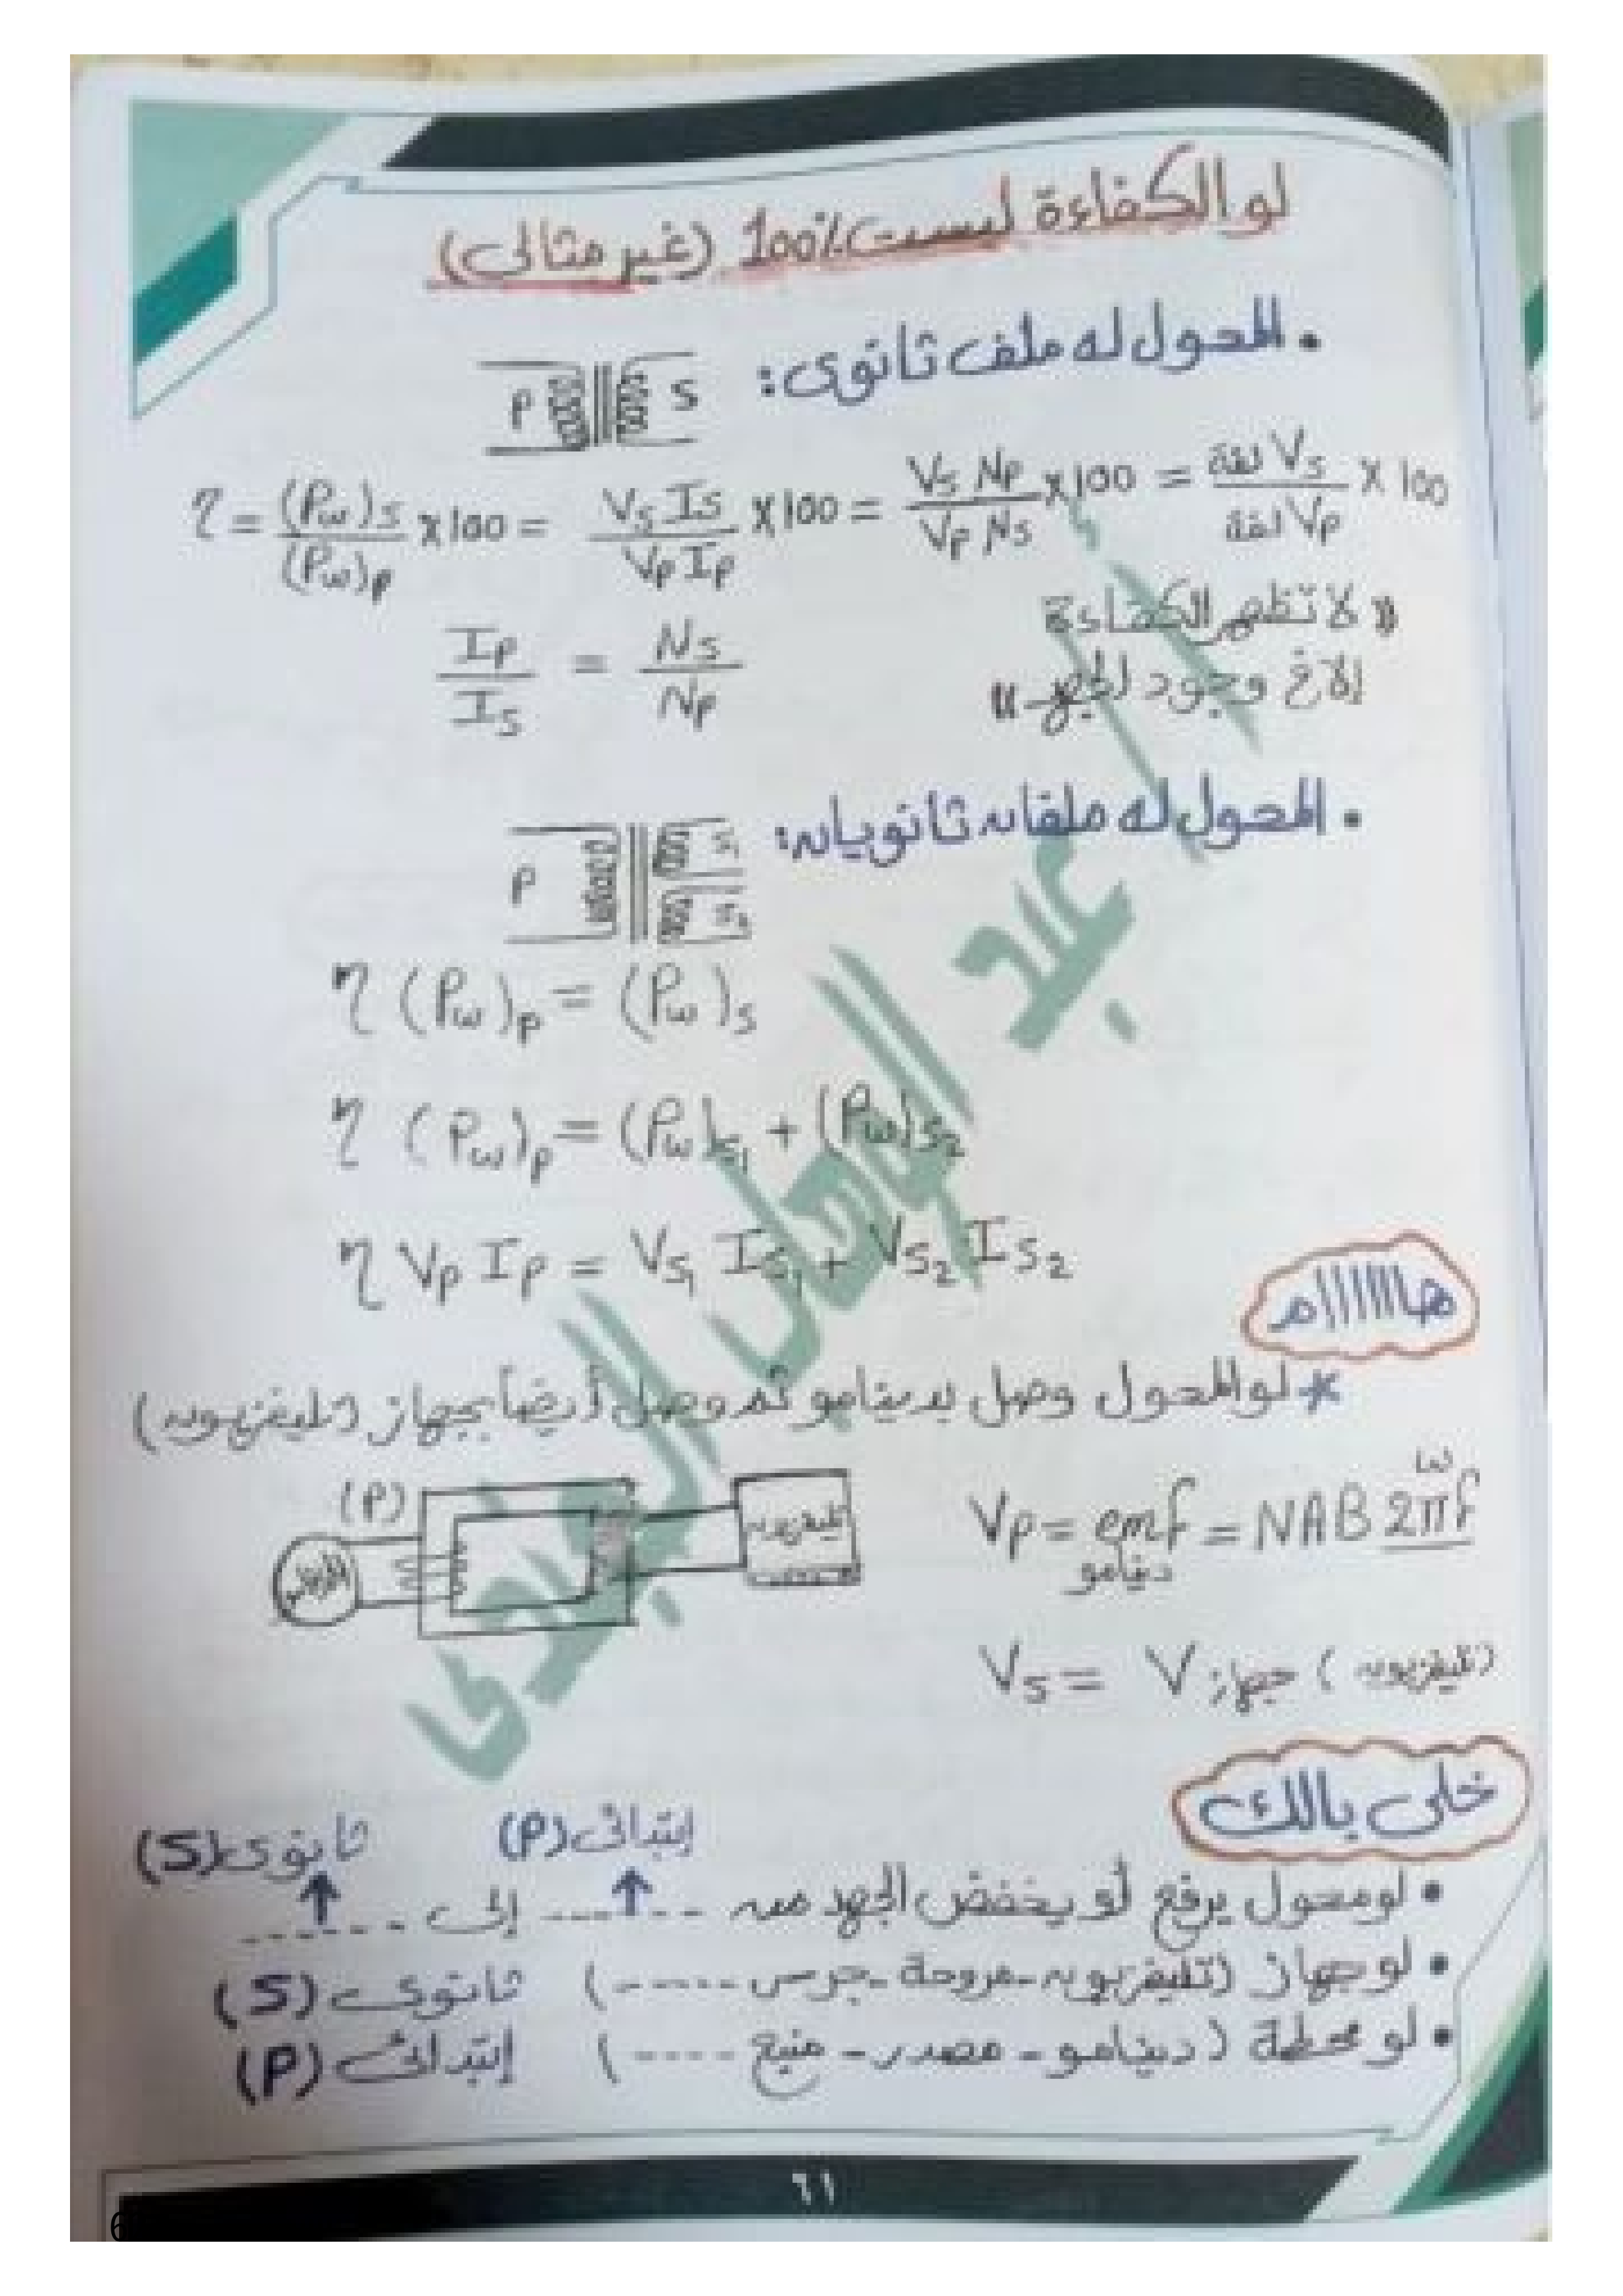 لو الكفاءة ليست 100٪ (غير مثالى)
• المحول له ملف ثانوى:
P S
η = (Pw)s / (Pw)p × 100 = Vs Is / Vp Ip × 100 = Vs Np / Vp Ns × 100 = Vs لفة / Vp لفة × 100
Ip / Is = Ns / Np
" لا تظهر الكفاءة
إلا فى وجود الجهد "
• المحول له ملفان ثانويان:
P S1
S2
η (Pw)p = (Pw)s
η (Pw)p = (Pw)s1 + (Pw)s2
η Vp Ip = Vs1 Is1 + Vs2 Is2
هااااااام
* لو المحول وصل بدينامو ثم وصل أيضاً بجهاز (تليفزيون)
(P)
تليفزيون
ω
Vp = emf دينامو = NAB 2πf
Vs = V جهاز (تليفزيون)
خلى بالك
إبتدائى (P) ثانوى (S)
• لو محول يرفع أو يخفض الجهد من ------ إلى ------
• لو جهاز (تليفزيون - مروحة - جرس -----) ثانوى (S)
• لو محطة (دينامو - مصدر - منبع ----) إبتدائى (P)
٦١
6